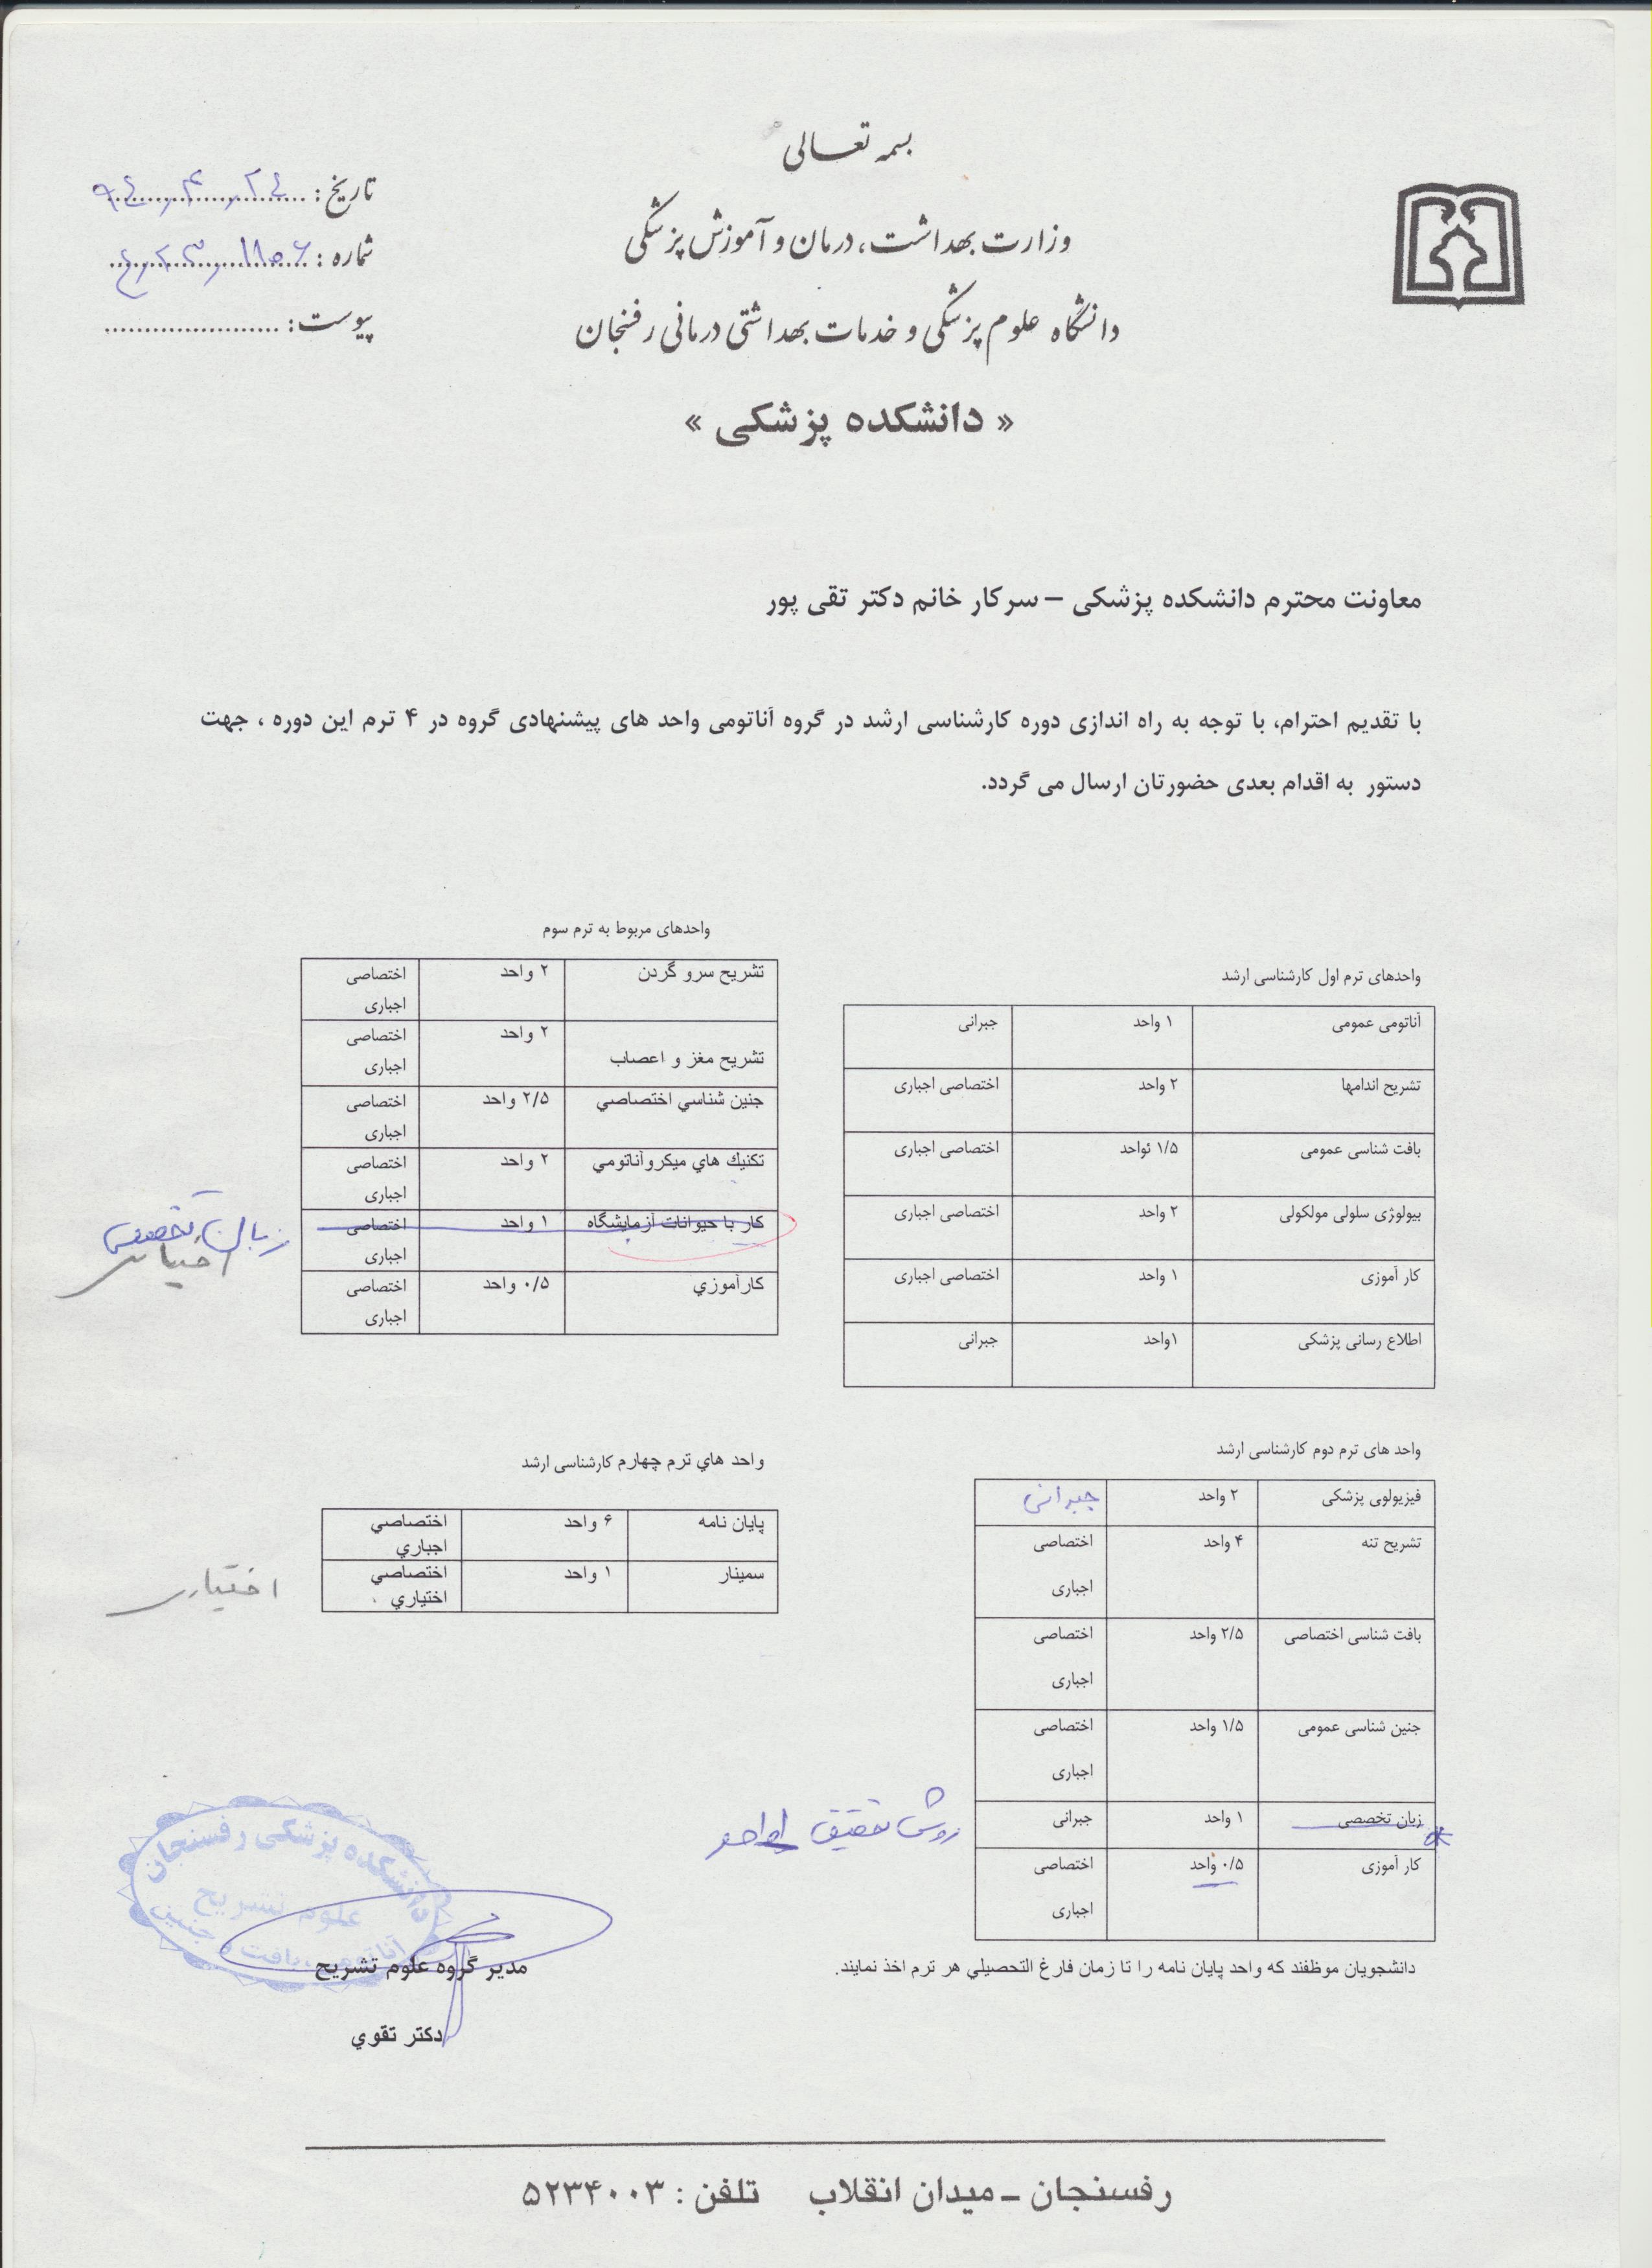 بسمه تعالی
وزارت بهداشت، درمان و آموزش پزشکی
دانشگاه علوم پزشکی و خدمات بهداشتی درمانی رفسنجان
« دانشکده پزشکی »
تاریخ :
شماره :
پیوست: ......................
معاونت محترم دانشکده پزشکی – سرکار خانم دکتر تقی پور
با تقدیم احترام، با توجه به راه اندازی دوره کارشناسی ارشد در گروه آناتومی واحد های پیشنهادی گروه در ۴ ترم این دوره ، جهت
دستور به اقدام بعدی حضورتان ارسال می گردد.
واحدهای ترم اول کارشناسی ارشد
آناتومی عمومی ۱ واحد جبرانی
تشریح اندامها ۲ واحد اختصاصی اجباری
بافت شناسی عمومی ۱/۵ ئواحد اختصاصی اجباری
بیولوژی سلولی مولکولی ۲ واحد اختصاصی اجباری
کار آموزی ۱ واحد اختصاصی اجباری
اطلاع رسانی پزشکی ۱واحد جبرانی
واحدهای مربوط به ترم سوم
تشریح سرو گردن ۲ واحد اختصاصی
اجباری
تشریح مغز و اعصاب ۲ واحد اختصاصی
اجباری
جنین شناسي اختصاصي ۲/۵ واحد اختصاصی
اجباری
تکنیك هاي میکروآناتومي ۲ واحد اختصاصی
اجباری
کار با حیوانات آزمایشگاه ۱ واحد اختصاصی
اجباری
زبان تخصصی
اختیاری
کارآموزي ۰/۵ واحد اختصاصی
اجباری
واحد های ترم دوم کارشناسی ارشد
فیزیولوی پزشکی ۲ واحد جبرانی
تشریح تنه ۴ واحد اختصاصی
اجباری
بافت شناسی اختصاصی ۲/۵ واحد اختصاصی
اجباری
جنین شناسی عمومی ۱/۵ واحد اختصاصی
اجباری
زبان تخصصی ۱ واحد جبرانی
روش تحقیق ۱ واحد
کار آموزی ۰/۵ واحد اختصاصی
اجباری
دانشجویان موظفند که واحد پایان نامه را تا زمان فارغ التحصیلي هر ترم اخذ نمایند.
واحد هاي ترم چهارم کارشناسی ارشد
پایان نامه ۶ واحد اختصاصي
اجباري
سمینار ۱ واحد اختصاصي
اختیاري
اختیاری
دانشکده پزشکی رفسنجان
علوم تشریح
آناتومی، بافت و جنین
مدیر گروه علوم تشریح
دکتر تقوي
رفسنجان – میدان انقلاب تلفن : ۵۲۳۴۰۰۳